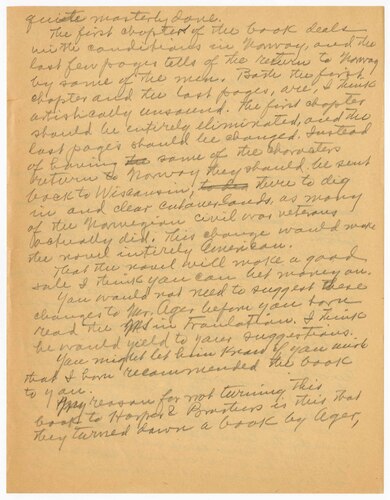 quite masterly done.
The first chapter of the book deals
with conditions in Norway, and the
last few pages tells of the return to Norway
by some of the men. Both the first
chapter and the last pages, are, I think
artistically unsound. The first chapter
should be entirely eliminated, and the
last pages should be changed. Instead
of having the some of the characters
return to Norway they should be sent
back to Wisconsin, to there to dig
in and clear cutoverlands, as many
of the Norwegian civil war veterans
actually did. This change would make
the novel entirely American.
That the novel will make a good
sale I think you can bet money on.
You would not need to suggest these
changes to Mr. Ager before you have
read the MS in translation. I think
he would yield to your suggestions.
You might let him know if you wish
that I have recommended the book
to you.
My reason for not turning this
book to Harper & Brothers is this that
they turned down a book by Ager,